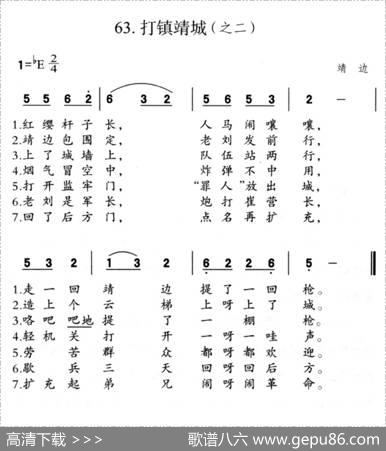 63. 打镇靖城(之二)
1=♭E 2/4
靖 边
5 5 6 2 | 6 3 2 | 5 6 5 3 | 2 - |
1.红 缨 杆 子 长, 人 马 闹 嚷 嚷,
2.靖 边 包 围 定, 老 刘 发 前 行,
3.上 了 城 墙 上, 队 伍 站 两 行,
4.烟 气 冒 空 中, 炸 弹 不 中 用,
5.打 开 监 牢 门, “罪 人” 放 出 城,
6.老 刘 是 军 长, 炮 打 崔 营 长,
7.回 了 后 方 门, 点 名 再 扩 充,
5 3 2 | 1 3 2 | 6 2 2 6 | 5 - |
1.走 一 回 靖 边 提 了 一 回 枪。
2.造 上 个 云 梯 上 呀 上 了 城。
3.咯 吧 吧地 提 了 一 棚 枪。
4.轻 机 关 打 开 一 呀 一 哇 声。
5.劳 苦 群 众 都 呀 都 欢 迎。
6.歇 兵 三 天 回 呀 回 后 方。
7.扩 充 起 弟 兄 闹 呀 闹 革 命。
高清下载 >>> 歌谱八六 www.gepu86.com